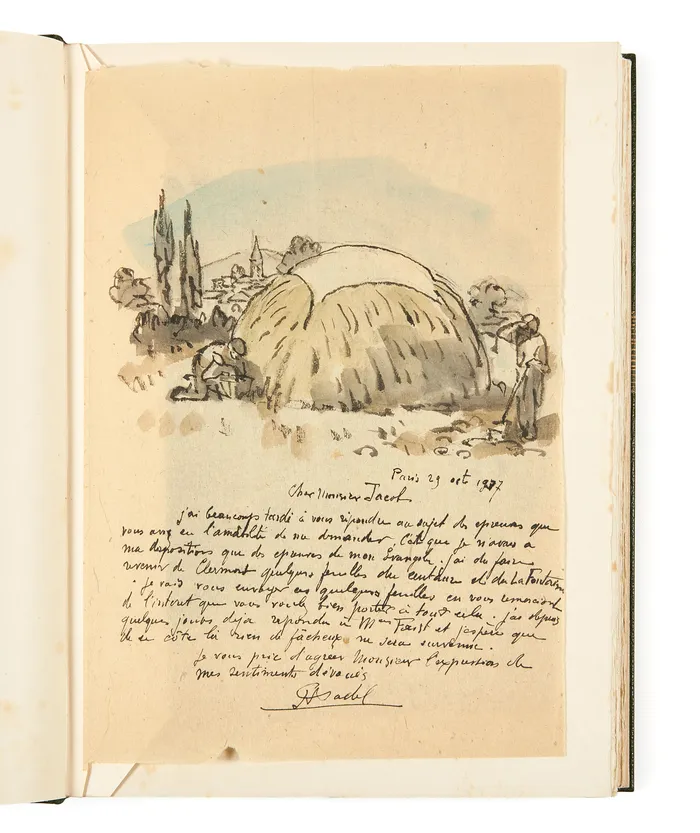 Paris 29 oct 1937
Cher Monsieur Jacob
j'ai beaucoup tardé à vous répondre au sujet des épreuves que
vous avez eu l'amabilité de me demander. C'est que je n'avais à
ma disposition que des épreuves de mon Evangile. j'ai du faire
revenir de Clermont quelques feuilles du centaure et de La Fontaine
. Je vais vous envoyer ces quelques feuilles en vous remerciant
de l'interet que vous voulez bien porter à tout cela. j'ai depuis
quelques jours deja repondu à M et j'espère que
de ce côté là rien de fâcheux ne sera survenu.
Je vous prie d'agréer Monsieur l'expression de
mes sentiments dévoués